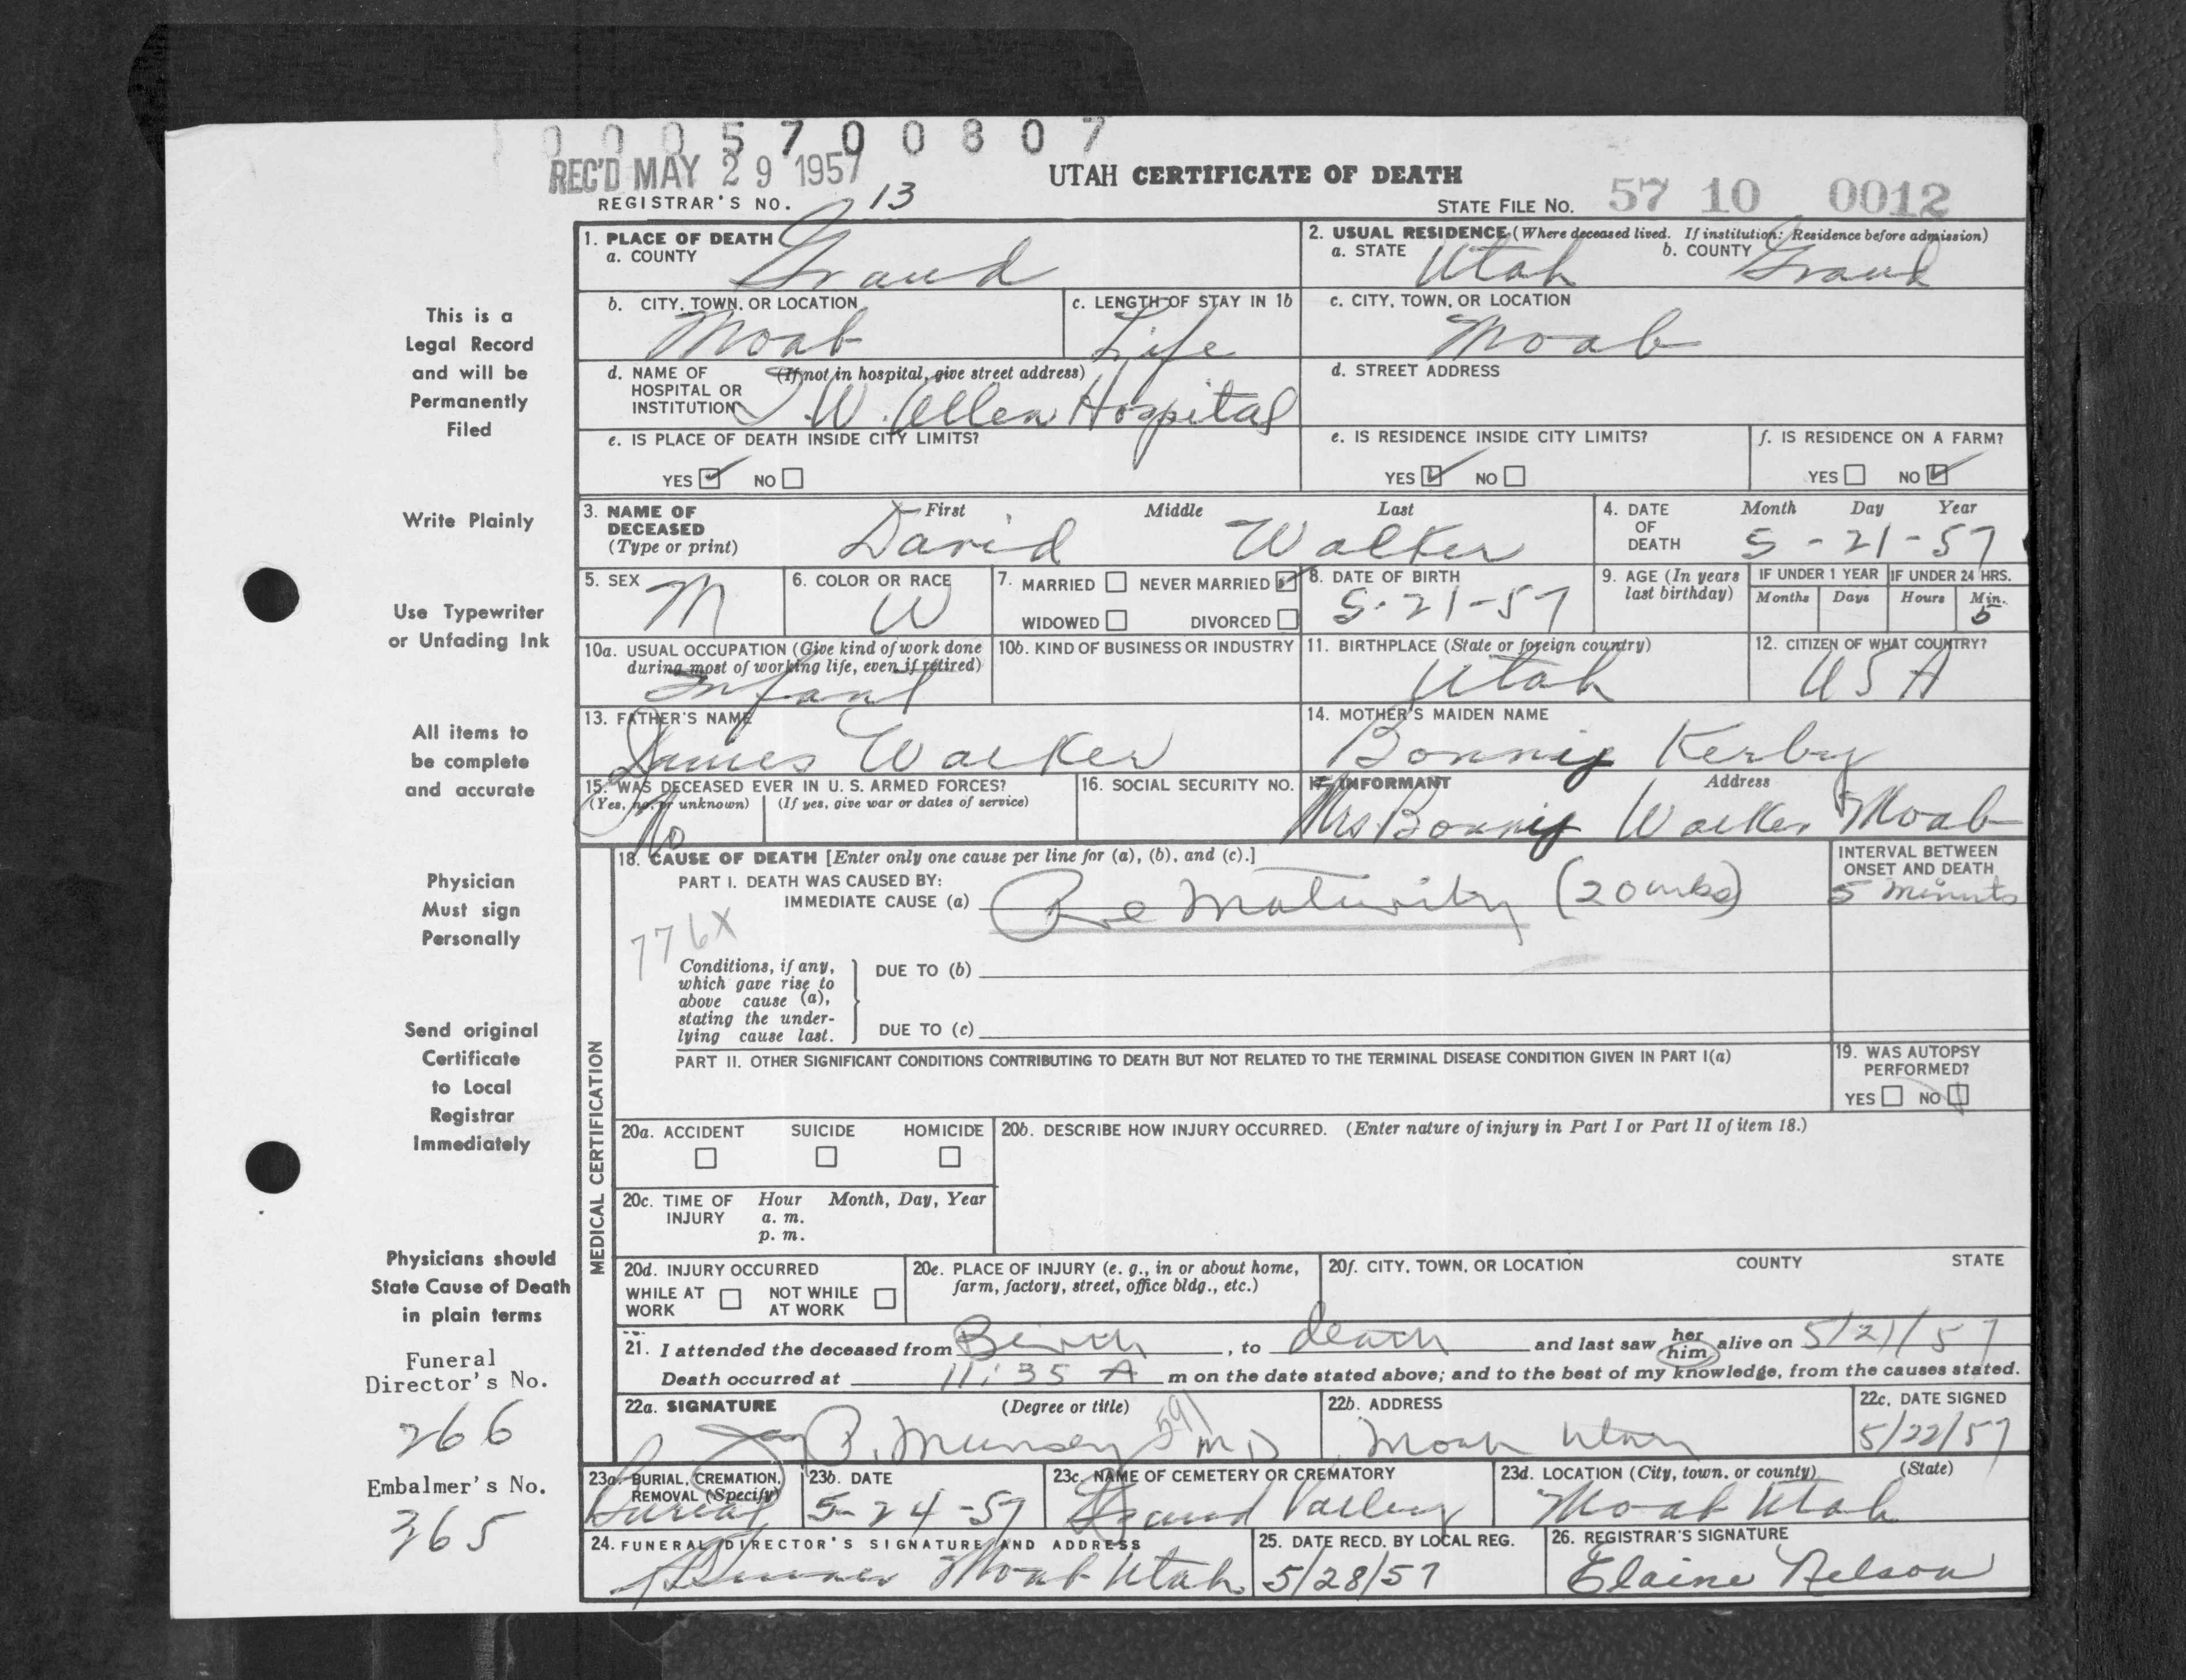 0 0 0 5 7 0 0 8 0 7
REC'D MAY 29 1957
UTAH CERTIFICATE OF DEATH
REGISTRAR'S NO. 13
STATE FILE NO. 57 10 0012
This is a
Legal Record
and will be
Permanently
Filed
Write Plainly
Use Typewriter
or Unfading Ink
All items to
be complete
and accurate
Physician
Must sign
Personally
Send original
Certificate
to Local
Registrar
Immediately
Physicians should
State Cause of Death
in plain terms
Funeral
Director's No.
266
Embalmer's No.
365
1. PLACE OF DEATH
a. COUNTY Grand
2. USUAL RESIDENCE (Where deceased lived. If institution: Residence before admission)
a. STATE Utah b. COUNTY Grand
b. CITY, TOWN, OR LOCATION
Moab
c. LENGTH OF STAY IN 1b
Life
c. CITY, TOWN, OR LOCATION
Moab
d. NAME OF (If not in hospital, give street address)
HOSPITAL OR
INSTITUTION I.W. Allen Hospital
d. STREET ADDRESS
e. IS PLACE OF DEATH INSIDE CITY LIMITS?
YES NO
e. IS RESIDENCE INSIDE CITY LIMITS?
YES NO
f. IS RESIDENCE ON A FARM?
YES NO
3. NAME OF First Middle Last
DECEASED
(Type or print) David Walker
4. DATE Month Day Year
OF
DEATH 5-21-57
5. SEX M
6. COLOR OR RACE
W
7. MARRIED NEVER MARRIED
WIDOWED DIVORCED
8. DATE OF BIRTH
5-21-57
9. AGE (In years
last birthday)
IF UNDER 1 YEAR
Months Days
IF UNDER 24 HRS.
Hours Min.
5
10a. USUAL OCCUPATION (Give kind of work done
during most of working life, even if retired)
Infant
10b. KIND OF BUSINESS OR INDUSTRY
11. BIRTHPLACE (State or foreign country)
Utah
12. CITIZEN OF WHAT COUNTRY?
USA
13. FATHER'S NAME
James Walker
14. MOTHER'S MAIDEN NAME
Bonnie Kerby
15. WAS DECEASED EVER IN U. S. ARMED FORCES?
(Yes, no, or unknown) (If yes, give war or dates of service)
No
16. SOCIAL SECURITY NO.
17. INFORMANT Address
Mrs Bonnie Walker Moab
MEDICAL CERTIFICATION
18. CAUSE OF DEATH [Enter only one cause per line for (a), (b), and (c).]
INTERVAL BETWEEN
ONSET AND DEATH
PART I. DEATH WAS CAUSED BY:
IMMEDIATE CAUSE (a) Pre maturity (20 wks) 5 minuts
776X
Conditions, if any,
which gave rise to
above cause (a),
stating the under-
lying cause last.
DUE TO (b)
DUE TO (c)
PART II. OTHER SIGNIFICANT CONDITIONS CONTRIBUTING TO DEATH BUT NOT RELATED TO THE TERMINAL DISEASE CONDITION GIVEN IN PART I(a)
19. WAS AUTOPSY
PERFORMED?
YES NO
20a. ACCIDENT SUICIDE HOMICIDE
20b. DESCRIBE HOW INJURY OCCURRED. (Enter nature of injury in Part I or Part II of item 18.)
20c. TIME OF Hour Month, Day, Year
INJURY a. m.
p. m.
20d. INJURY OCCURRED
WHILE AT NOT WHILE
WORK AT WORK
20e. PLACE OF INJURY (e. g., in or about home,
farm, factory, street, office bldg., etc.)
20f. CITY, TOWN, OR LOCATION COUNTY STATE
21. I attended the deceased from Birth, to death and last saw her him alive on 5/21/57
Death occurred at 11:35 A m on the date stated above; and to the best of my knowledge, from the causes stated.
22a. SIGNATURE (Degree or title)
Jay P. Munsey 591 MD
22b. ADDRESS
Moab Utah
22c. DATE SIGNED
5/22/57
23a. BURIAL, CREMATION,
REMOVAL (Specify)
Burial
23b. DATE
5-24-57
23c. NAME OF CEMETERY OR CREMATORY
Grand Valley
23d. LOCATION (City, town, or county) (State)
Moab Utah
24. FUNERAL DIRECTOR'S SIGNATURE AND ADDRESS
Moab Utah
25. DATE RECD. BY LOCAL REG.
5/28/57
26. REGISTRAR'S SIGNATURE
Elaine Nelson